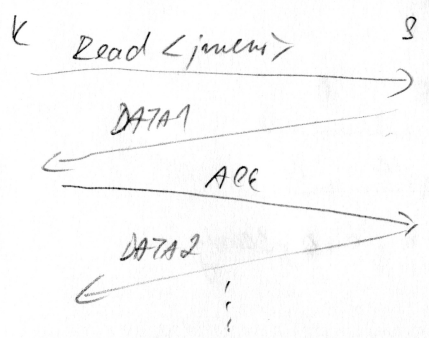 K S
Read <jméno>
DATA1
ACK
DATA2